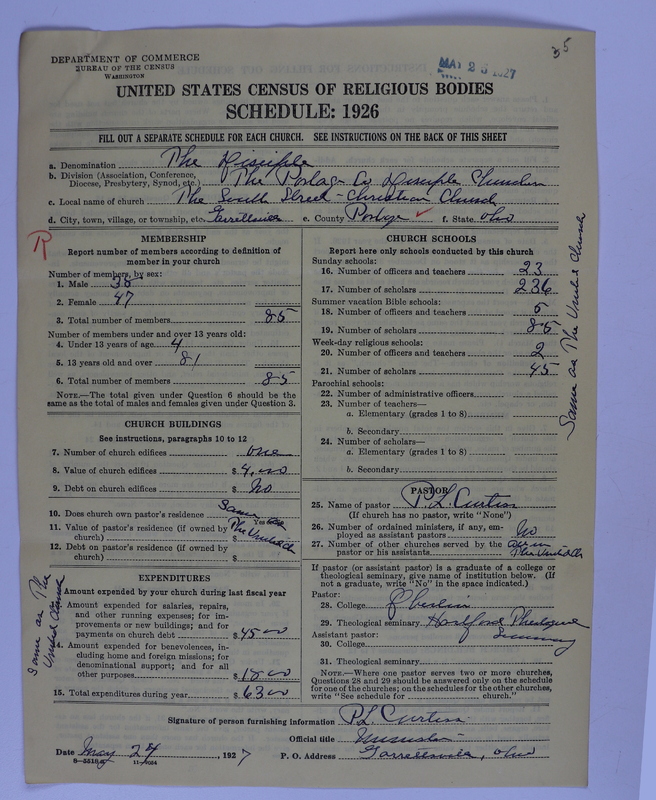 35
DEPARTMENT OF COMMERCE
BUREAU OF THE CENSUS
WASHINGTON
MAY 25 1927
UNITED STATES CENSUS OF RELIGIOUS BODIES
SCHEDULE: 1926
FILL OUT A SEPARATE SCHEDULE FOR EACH CHURCH. SEE INSTRUCTIONS ON THE BACK OF THIS SHEET
a. Denomination The Disciple
b. Division (Association, Conference, Diocese, Presbytery, Synod, etc.) The Portage Co Disciple Churches
c. Local name of church The South Street-Christian Church
d. City, town, village, or township, etc. Garrettsville e. County Portage ✓ f. State Ohio
R
MEMBERSHIP
Report number of members according to definition of
member in your church
Number of members, by sex:
1. Male 38
2. Female 47
3. Total number of members 85
Number of members under and over 13 years old:
4. Under 13 years of age 4
5. 13 years old and over 81
6. Total number of members 85
NOTE.—The total given under Question 6 should be the
same as the total of males and females given under Question 3.
CHURCH BUILDINGS
See instructions, paragraphs 10 to 12
7. Number of church edifices one
8. Value of church edifices $
9. Debt on church edifices $ No
10. Does church own pastor's residence Same
Yes
11. Value of pastor's residence (if owned by
church) $
12. Debt on pastor's residence (if owned by
church) $
EXPENDITURES
Amount expended by your church during last fiscal year
Amount expended for salaries, repairs,
and other running expenses; for im-
provements or new buildings; and for
payments on church debt $ 4500
14. Amount expended for benevolences, in-
cluding home and foreign missions; for
denominational support; and for all
other purposes $ 1800
15. Total expenditures during year $ 6300
Same as The
United Church
CHURCH SCHOOLS
Report here only schools conducted by this church
Sunday schools:
16. Number of officers and teachers 23
17. Number of scholars 236
Summer vacation Bible schools:
18. Number of officers and teachers 5
19. Number of scholars 85
Week-day religious schools:
20. Number of officers and teachers 2
21. Number of scholars 45
Parochial schools:
22. Number of administrative officers
23. Number of teachers—
a. Elementary (grades 1 to 8)
b. Secondary
24. Number of scholars—
a. Elementary (grades 1 to 8)
b. Secondary
Same as The United Church
PASTOR
25. Name of pastor P. L. Curtiss
(If church has no pastor, write "None")
26. Number of ordained ministers, if any, em-
ployed as assistant pastors No
27. Number of other churches served by the
pastor or his assistants
If pastor (or assistant pastor) is a graduate of a college or
theological seminary, give name of institution below. (If
not a graduate, write "No" in the space indicated.)
Pastor:
28. College Oberlin
29. Theological seminary Hartford Theological
Seminary
Assistant pastor:
30. College
31. Theological seminary
NOTE.—Where one pastor serves two or more churches,
Questions 28 and 29 should be answered only on the schedule
for one of the churches; on the schedules for the other churches,
write "See schedule for church."
Signature of person furnishing information P. L. Curtiss
Official title Minister
Date May 24, 1927 P. O. Address Garrettsville, Ohio